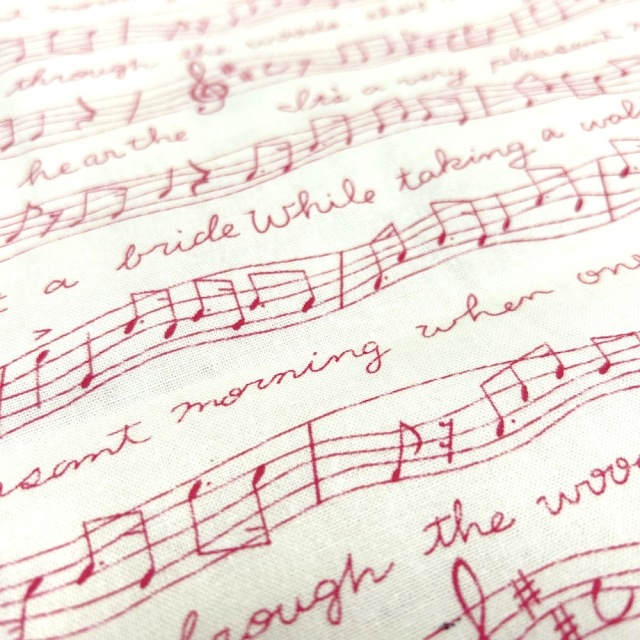 through the woods
It's a very pleasant
hear the
a bride While taking a wal
asant morning when one
rough the woo